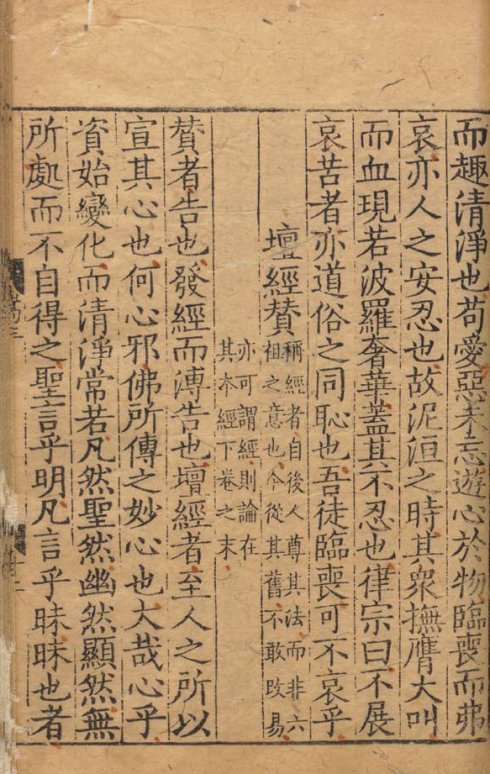 而趣清淨也苟愛惡未忘遊心於物臨喪而弗
哀亦人之安忍也故泥洹之時其衆撫膺大叫
而血現若波羅奢華蓋其不忍也律宗曰不展
哀苦者亦道俗之同恥也吾徒臨喪可不哀乎
壇經賛
稱經者自後人尊其法而非六
祖之意也今從其舊不敢改易
亦可謂經則論在
其本經下卷之末
賛者告也發經而溥告也壇經者至人之所以
宣其心也何心邪佛所傳之妙心也大哉心乎
資始變化而清淨常若凡然聖然幽然顯然無
所處而不自得之聖言乎明凡言乎昧昧也者